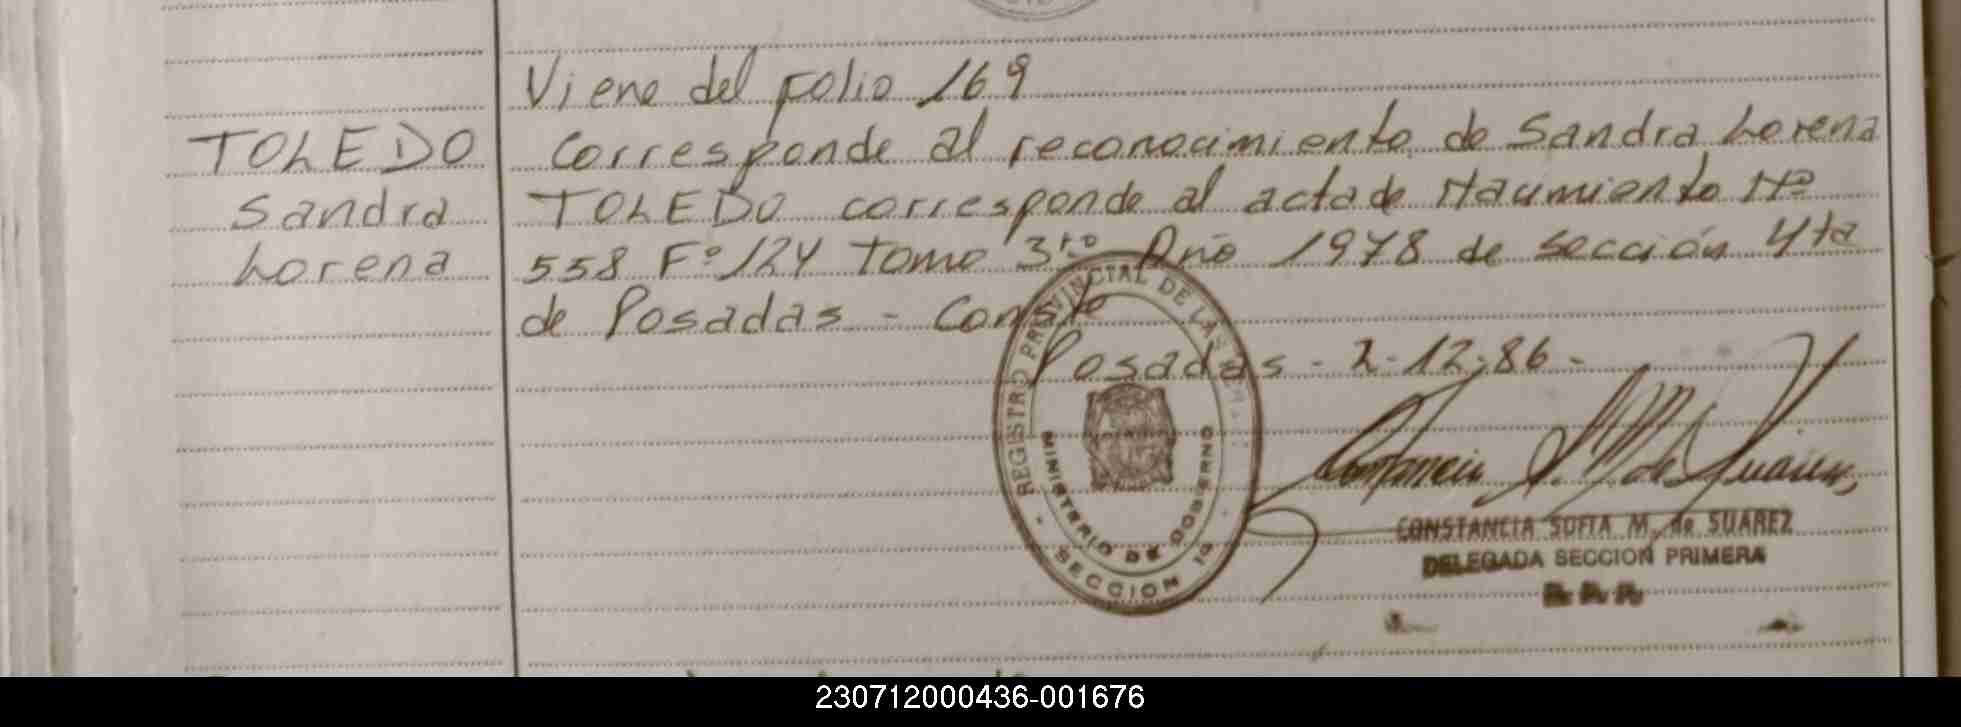 Viene del folio 169
TOLEDO
Sandra
Lorena
Corresponde al reconocimiento de Sandra Lorena
TOLEDO corresponde al acta de Nacimiento Nº
558 Fº 124 Tomo 3ro Año 1978 de Sección 4ta
de Posadas - Conste
Posadas - 2-12-86 -
REGISTRO PROVINCIAL DE LAS
MINISTERIO DE GOBIERNO
SECCION 1a
CONSTANCIA SOFIA M. de SUAREZ
DELEGADA SECCION PRIMERA
R. P. P.
230712000436-001676